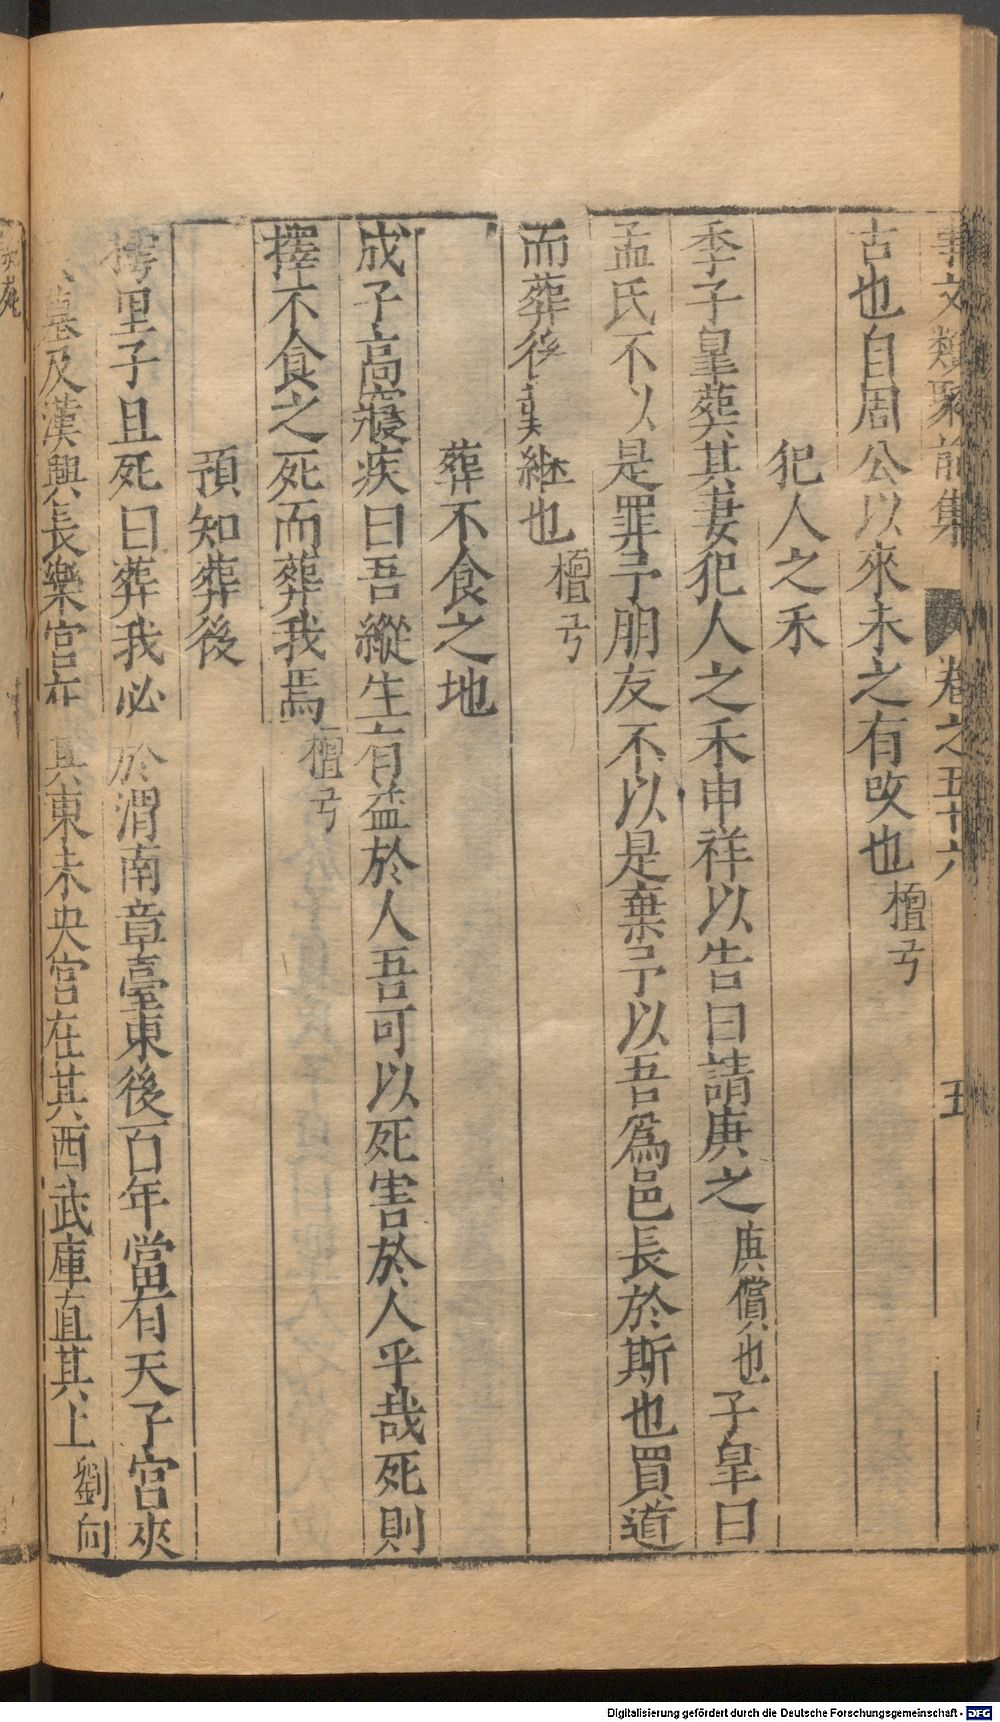 事文類聚前集 卷之五十六 五
古也自周公以來未之有改也檀弓
犯人之禾
季子皐葬其妻犯人之禾申祥以告曰請庚之庚償也子皐曰
孟氏不以是罪予朋友不以是棄予以吾爲邑長於斯也買道
而葬後難継也檀弓
葬不食之地
成子高寢疾曰吾縱生有益於人吾可以死害於人乎哉死則
擇不食之死而葬我焉檀弓
預知葬後
樗里子且死曰葬我必於渭南章臺東後百年當有天子宮夾
墓及漢興長樂宮在其東未央宮在其西武庫直其上劉向
Digitalisierung gefördert durch die Deutsche Forschungsgemeinschaft - DFG